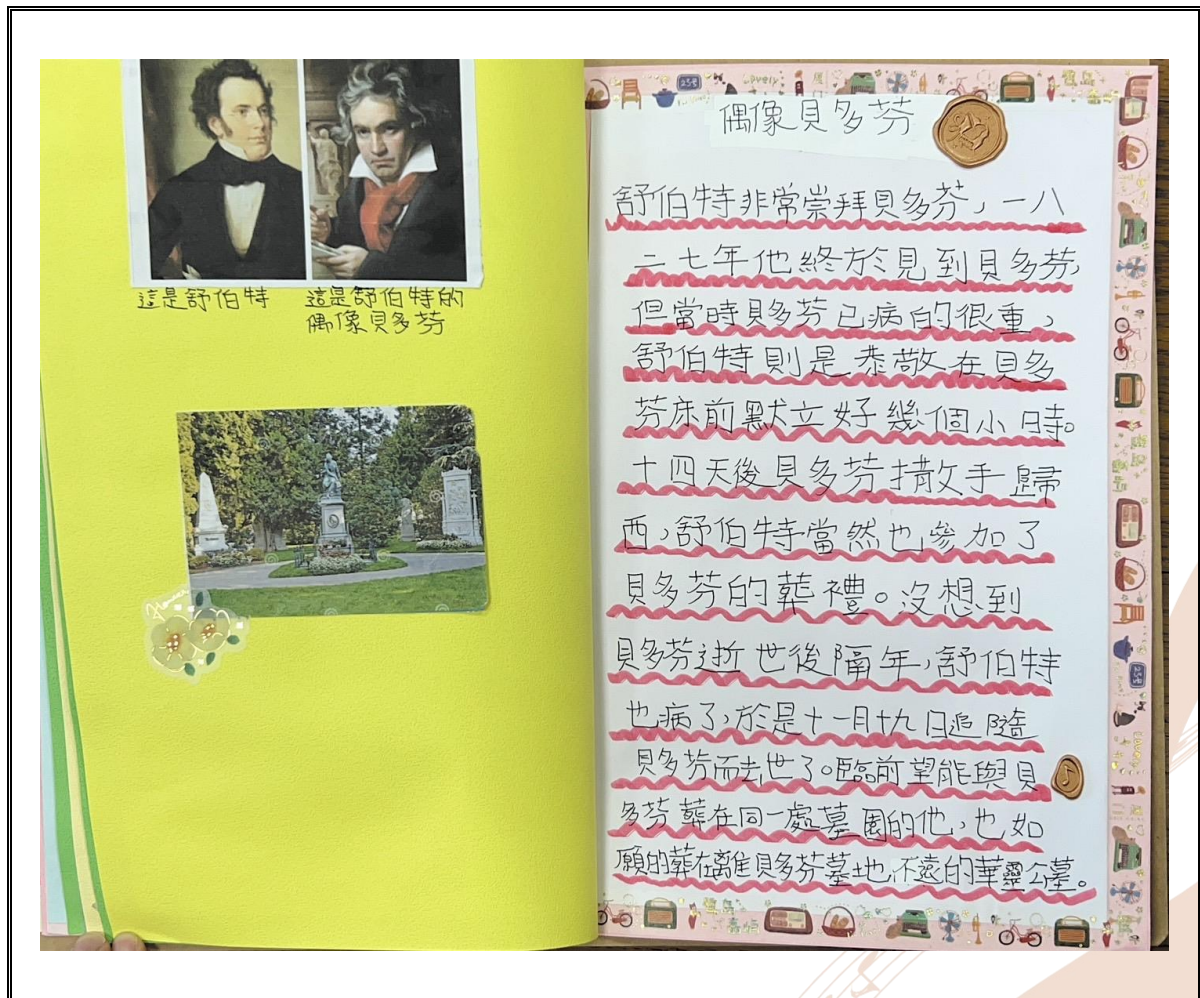 這是舒伯特
這是舒伯特的
偶像貝多芬
偶像貝多芬
舒伯特非常崇拜貝多芬,一八
二七年他終於見到貝多芬,
但當時貝多芬已病的很重,
舒伯特則是恭敬在貝多
芬床前默立好幾個小時。
十四天後貝多芬撒手歸
西,舒伯特當然也參加了
貝多芬的葬禮。沒想到
貝多芬逝世後隔年,舒伯特
也病了,於是十一月十九日追隨
貝多芬而去世了。臨前望能與貝
多芬葬在同一處墓園的他,也如
願的葬在離貝多芬墓地不遠的華靈公墓。